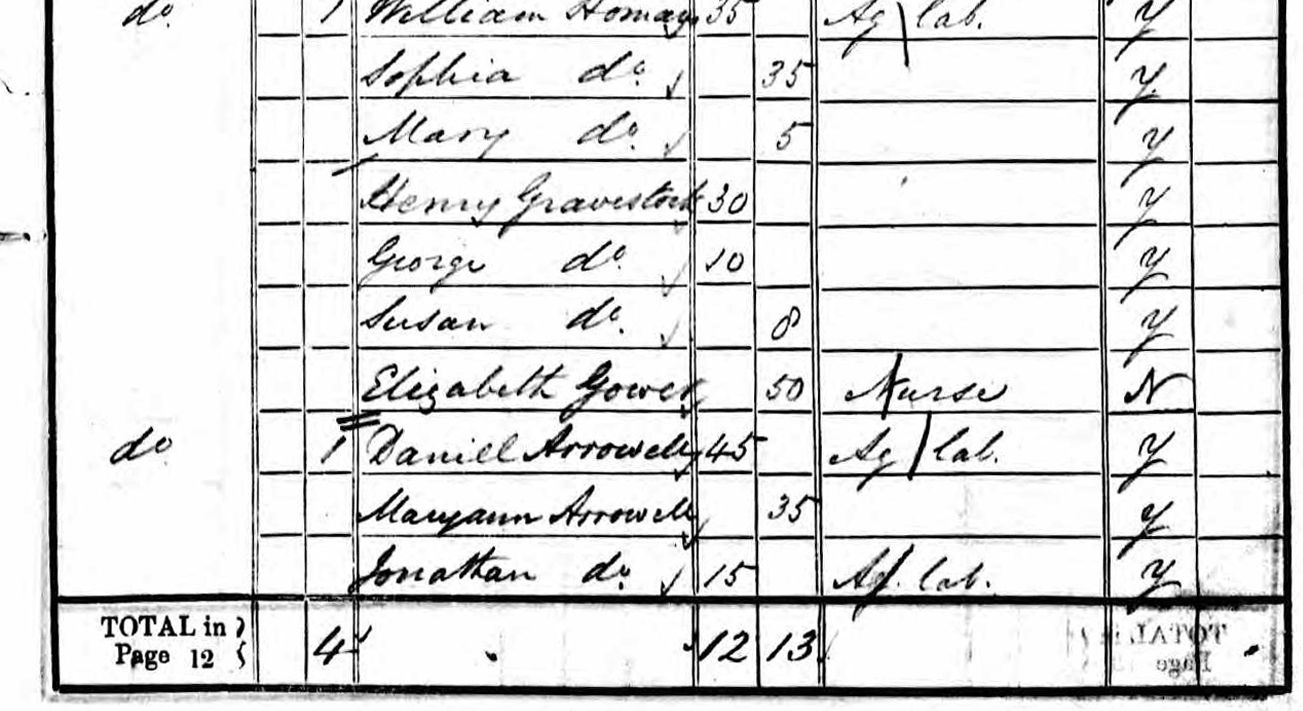 do 1 William Homans 35 Ag lab. Y
Sophia do. 35 Y
Mary do. 5 Y
Henry Gravestock 30 Y
George do. 10 Y
Susan do. 8 Y
Elizabeth Gower 50 Nurse N
do 1 Daniel Arrowell 45 Ag lab. Y
Maryann Arrowell 35 Y
Jonathan do. 15 Ag. lab. Y
TOTAL in
Page 12 4 12 13